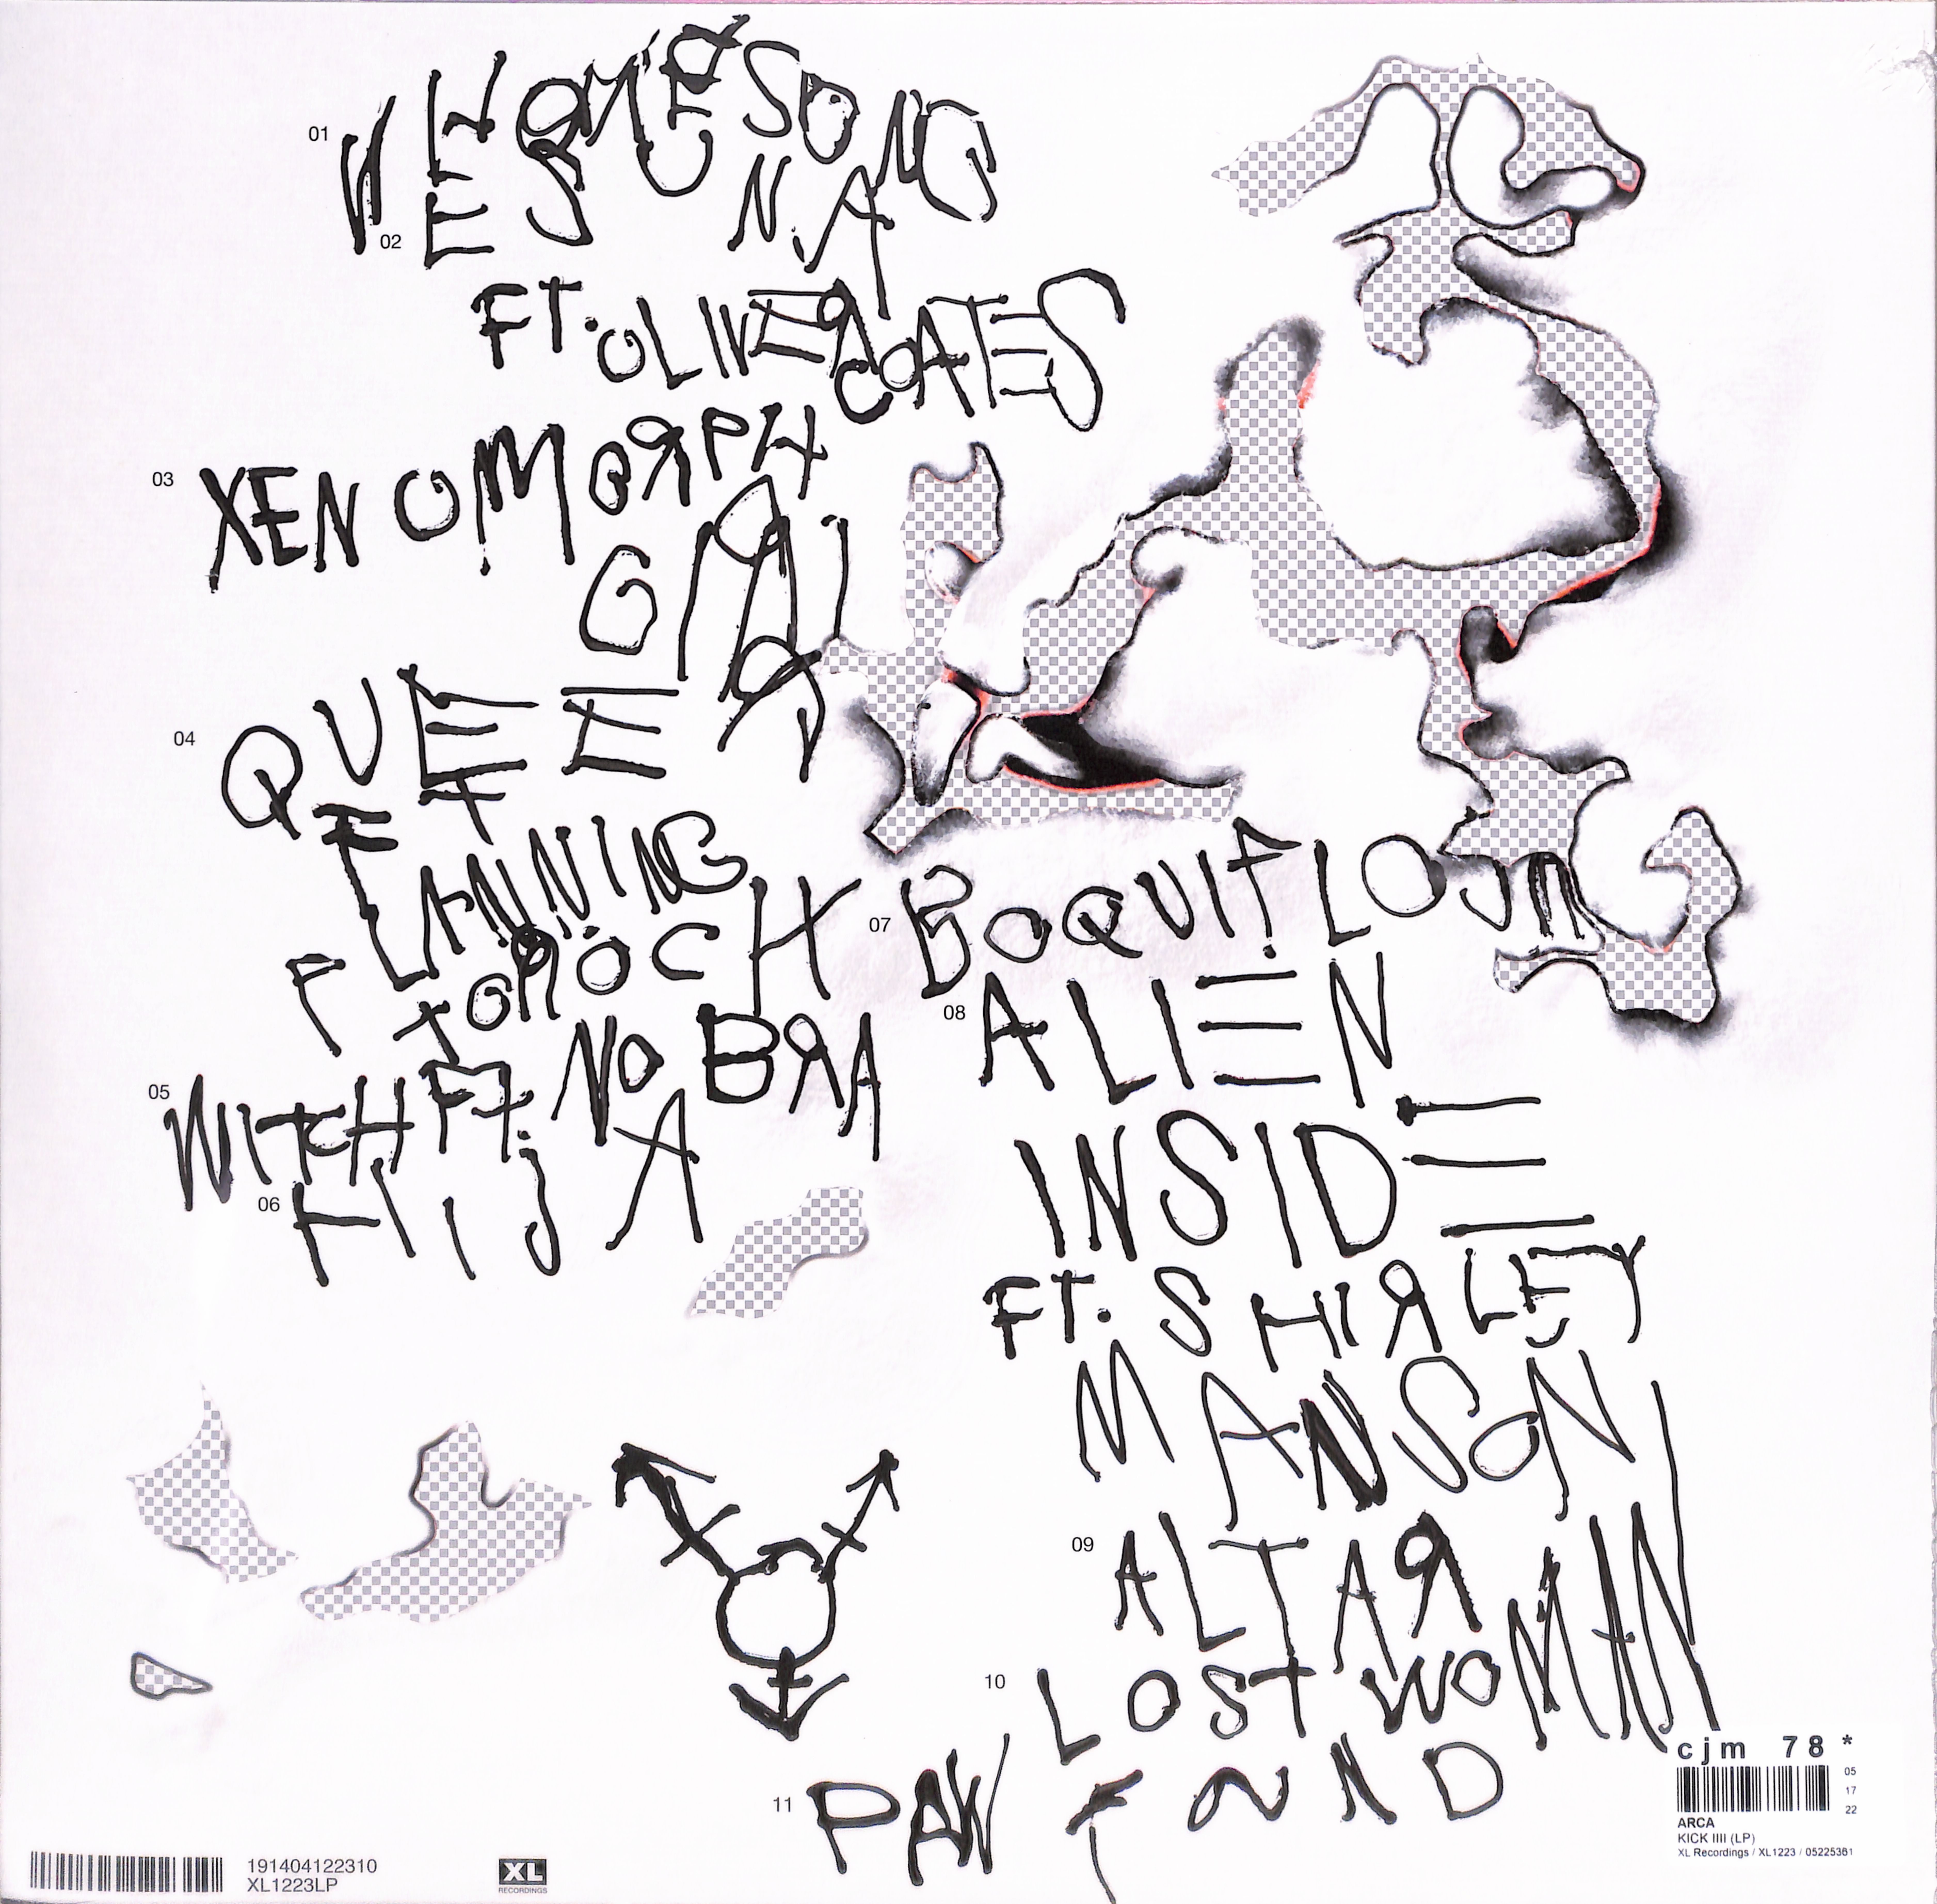 01 WHORESONG
02 ESUNA
FT. OLIVER COATES
03 XENOMORPH
GIRL
04 QUEER
FT
PLANNING
TOROCK
05 WITCH FT. NO BRA
06 HIJA
07 BOQUIFLOJA
08 ALIEN
INSIDE
FT. SHIRLEY
MANSON
09 ALTAR
10 LOST WOMAN
FOUND
11 PAW
191404122310
XL1223LP
XL
RECORDINGS
cjm 78 *
05
17
22
ARCA
KICK IIII (LP)
XL Recordings / XL1223 / 05225361